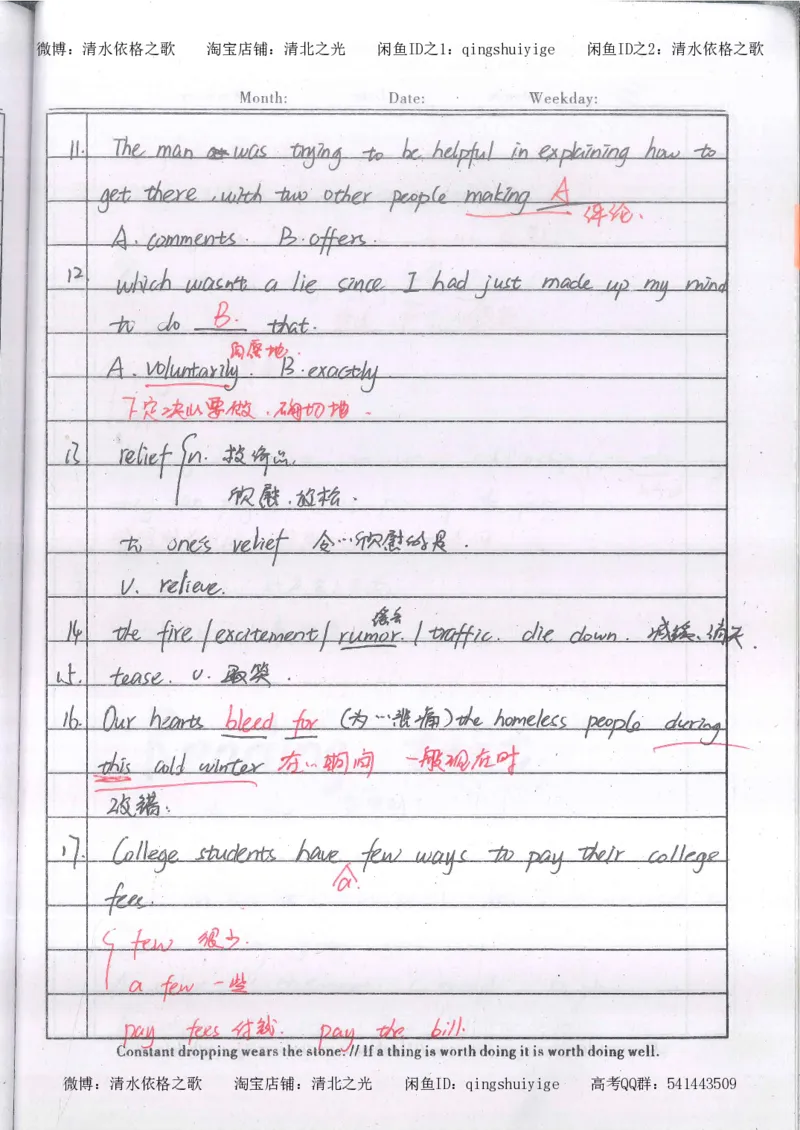 微博：清水依格之歌 淘宝店铺：清北之光 闲鱼ID之1：qingshuiyige 闲鱼ID之2：清水依格之歌
Month: Date: Weekday:
11. The man was trying to be helpful in explaining how to
get there, with two other people making A
评论.
A. comments. B. offers.
12. which wasn't a lie since I had just made up my mind
to do B. that.
自愿地.
A. voluntarily. B. exactly.
下定决心要做. 确切地.
13 relief { n.
欣慰. 放松.
to one's relief 令…欣慰的是.
v. relieve.
谣言
14 the fire / excitement / rumor. / traffic. die down. 减缓、消失.
15. tease. v. 取笑.
16. Our hearts bleed for (为…悲痛) the homeless people during
this cold winter 在…期间 一般现在时
改错:
17. College students have few ways to pay their college
a
fees.
{ few 很少.
a few 一些
pay fees 付钱. pay the bill.
Constant dropping wears the stone. // If a thing is worth doing it is worth doing well.
微博：清水依格之歌 淘宝店铺：清北之光 闲鱼ID：qingshuiyige 高考QQ群：541443509